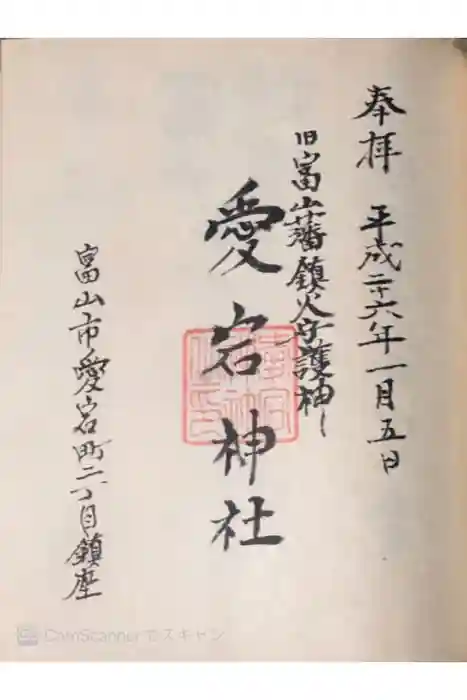 奉拝 平成二十六年一月五日
旧富山藩鎮火守護神
愛宕神社
富山市愛宕町二丁目鎮座
CamScannerでスキャン